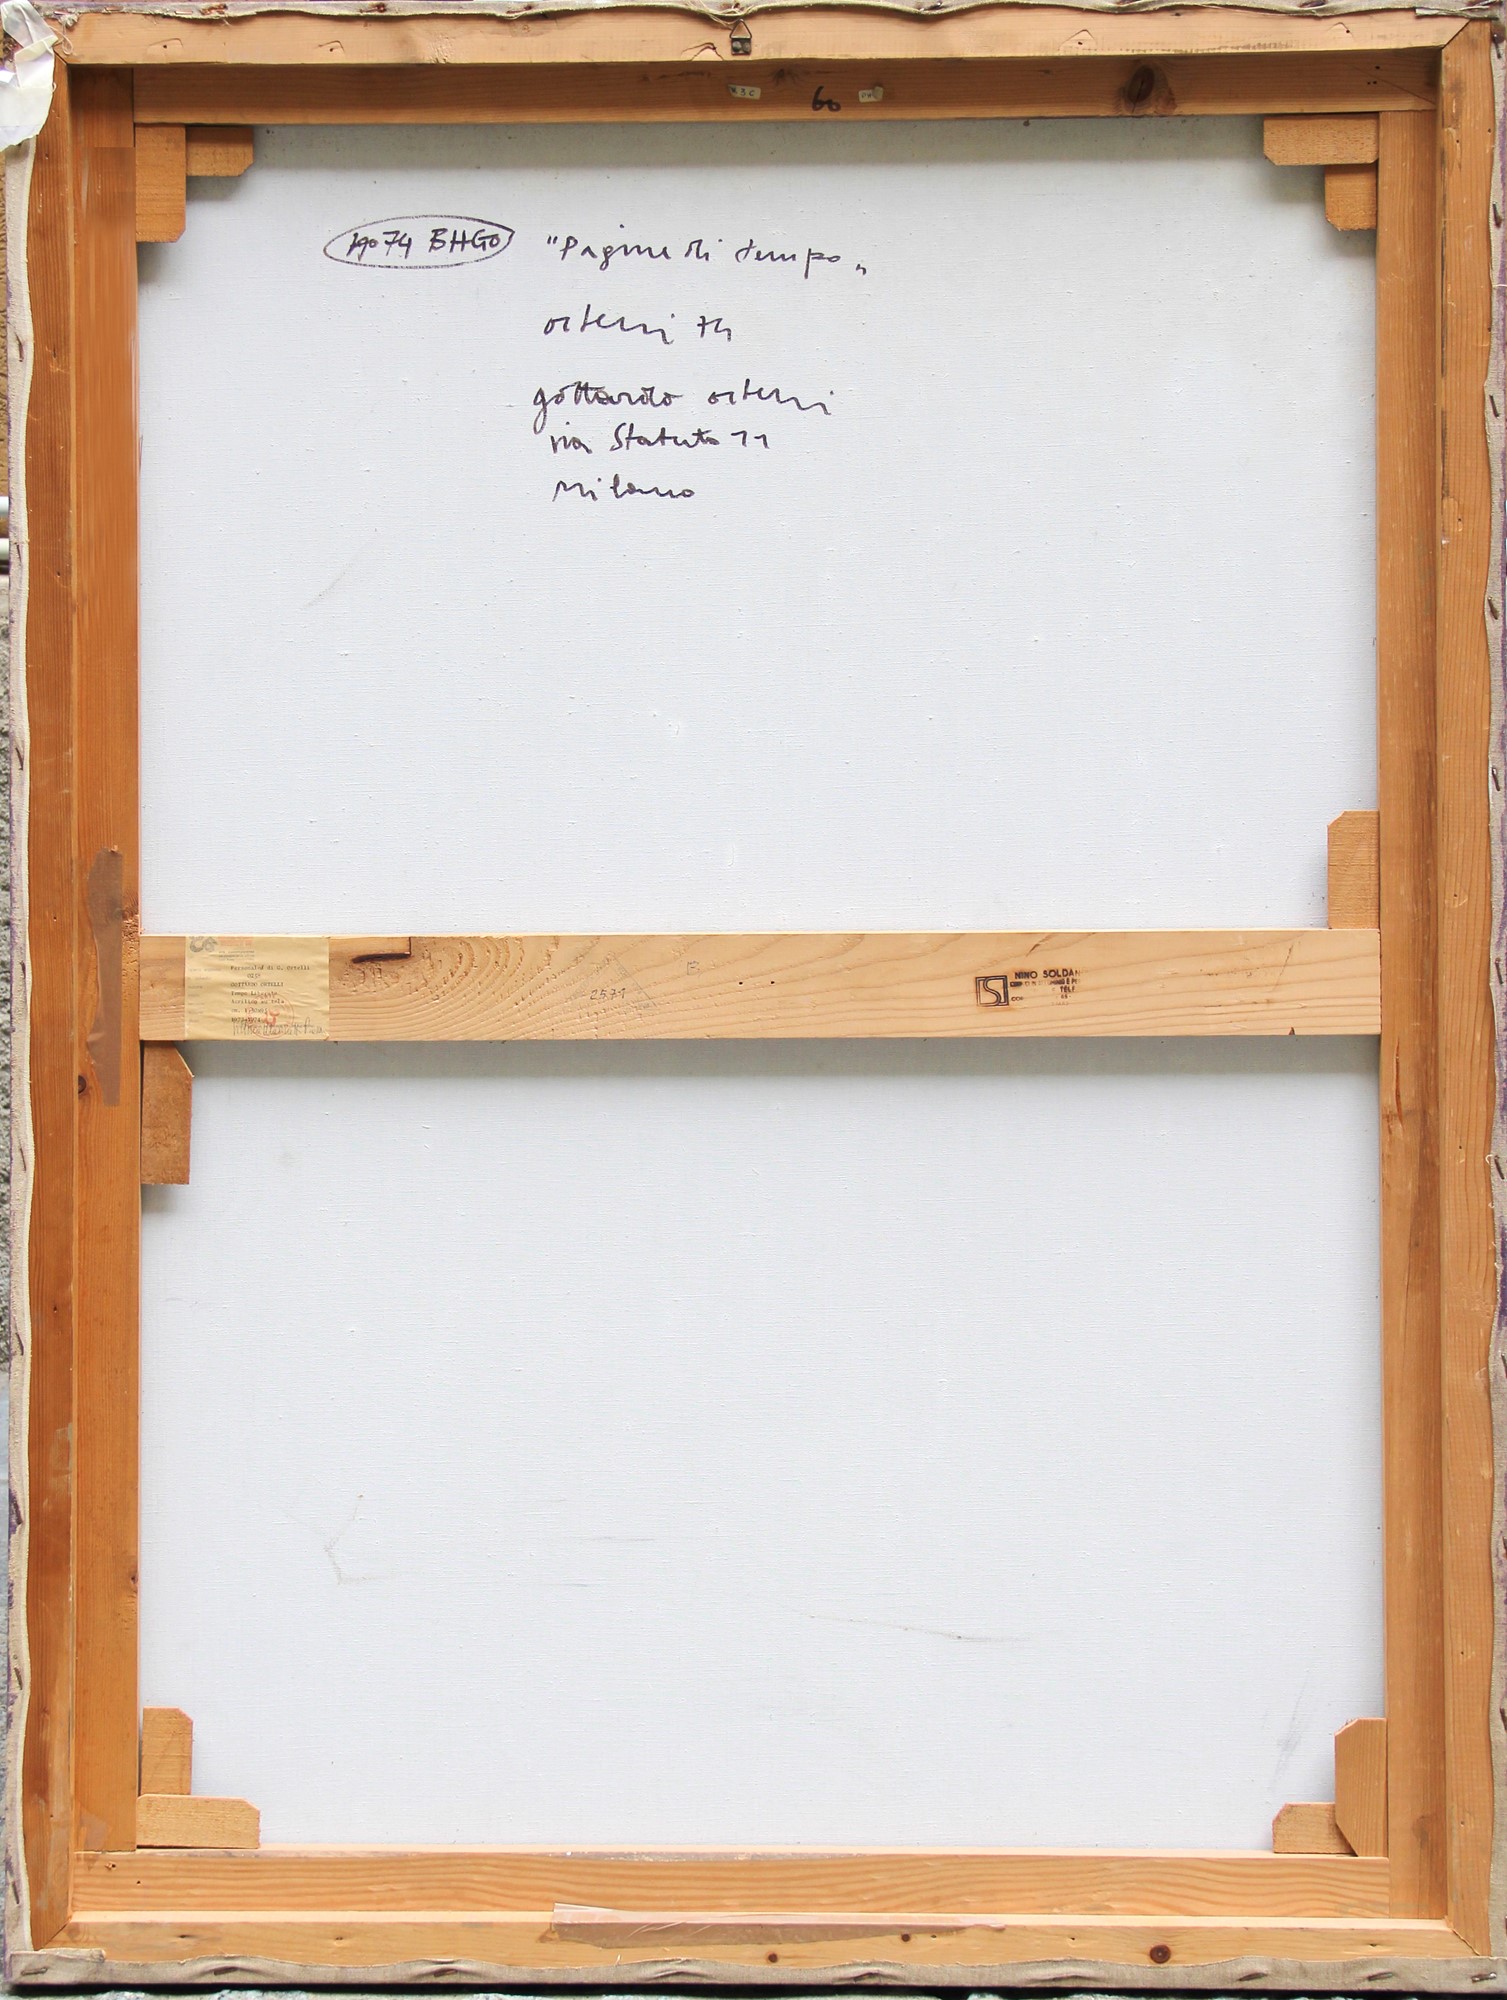 60
19074 BHGO "Pagine di tempo„
ortelli 74
gottardo ortelli
via Statuto 11
milano
Personale di G. Ortelli
GOTTARDO ORTELLI
Acrilico su tela
2571
B
NINO SOLDAN
TELE